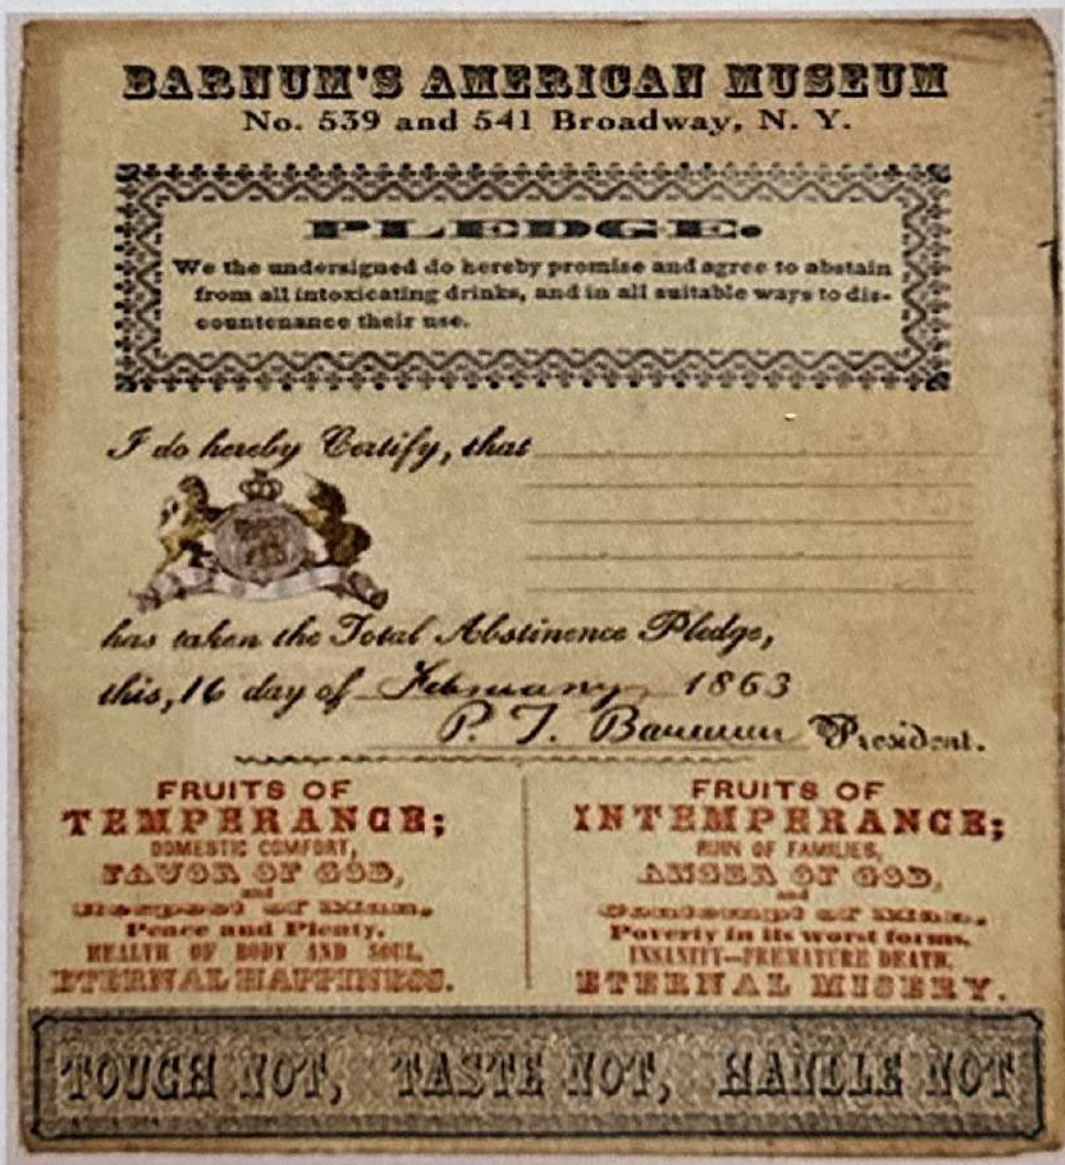 BARNUM'S AMERICAN MUSEUM
No. 539 and 541 Broadway, N. Y.
PLEDGE.
We the undersigned do hereby promise and agree to abstain
from all intoxicating drinks, and in all suitable ways to dis-
countenance their use.
I do hereby Certify, that
has taken the Total Abstinence Pledge,
this, 16 day of February 1863
P. T. Barnum President.
FRUITS OF
TEMPERANCE;
DOMESTIC COMFORT,
FAVOR OF GOD,
and
Respect of Man.
Peace and Plenty.
HEALTH OF BODY AND SOUL.
ETERNAL HAPPINESS.
FRUITS OF
INTEMPERANCE;
RUIN OF FAMILIES,
ANGER OF GOD,
and
Contempt of Man.
Poverty in its worst forms.
INSANITY—PREMATURE DEATH.
ETERNAL MISERY.
TOUCH NOT, TASTE NOT, HANDLE NOT